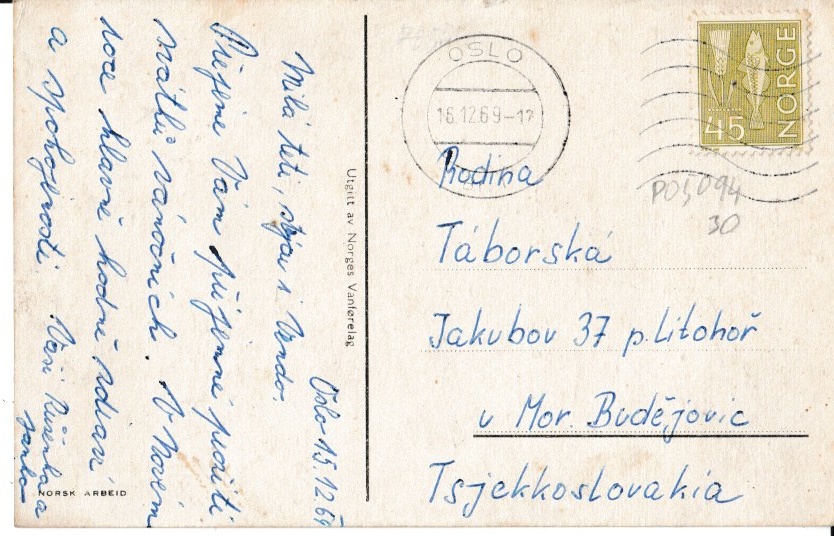 Oslo 15.12.69
Milá teti, strýci i Vendo.
Přejeme Vám příjemné prožití
svátků vánočních. V Novém
roce hlavně hodně zdraví
a spokojenosti. Vaši Růženka a
NORSK ARBEID
Utgitt av Norges Vanførelag
OSLO
16.12.69-17
NORGE
45
POJ094
30
Rodina
Táborská
Jakubov 37 p. Litohoř
u Mor. Budějovic
Tsjekkoslovakia